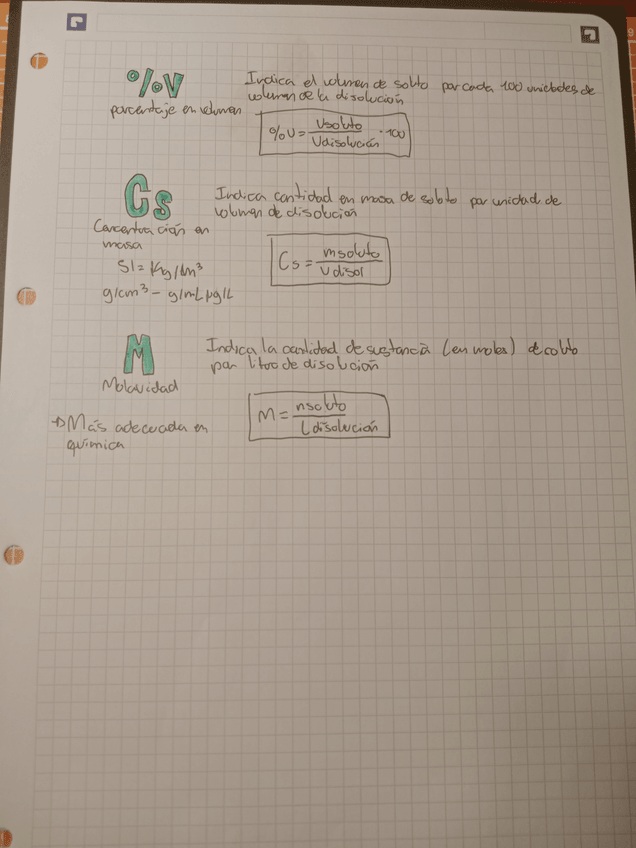 %V
Indica el volumen de soluto por cada 100 unidades de
volumen de la disolución
porcentaje en volumen
%V = Vsoluto / Vdisolución · 100
Cs
Indica cantidad en masa de soluto por unidad de
volumen de disolución
Concentración en
masa
Cs = msoluto / Vdisol
SI = Kg/m³
g/cm³ - g/mL µg/L
M
Indica la cantidad de sustancia (en moles) de soluto
por litro de disolución
Molaridad
M = nsoluto / L disolución
→ Más adecuada en
química